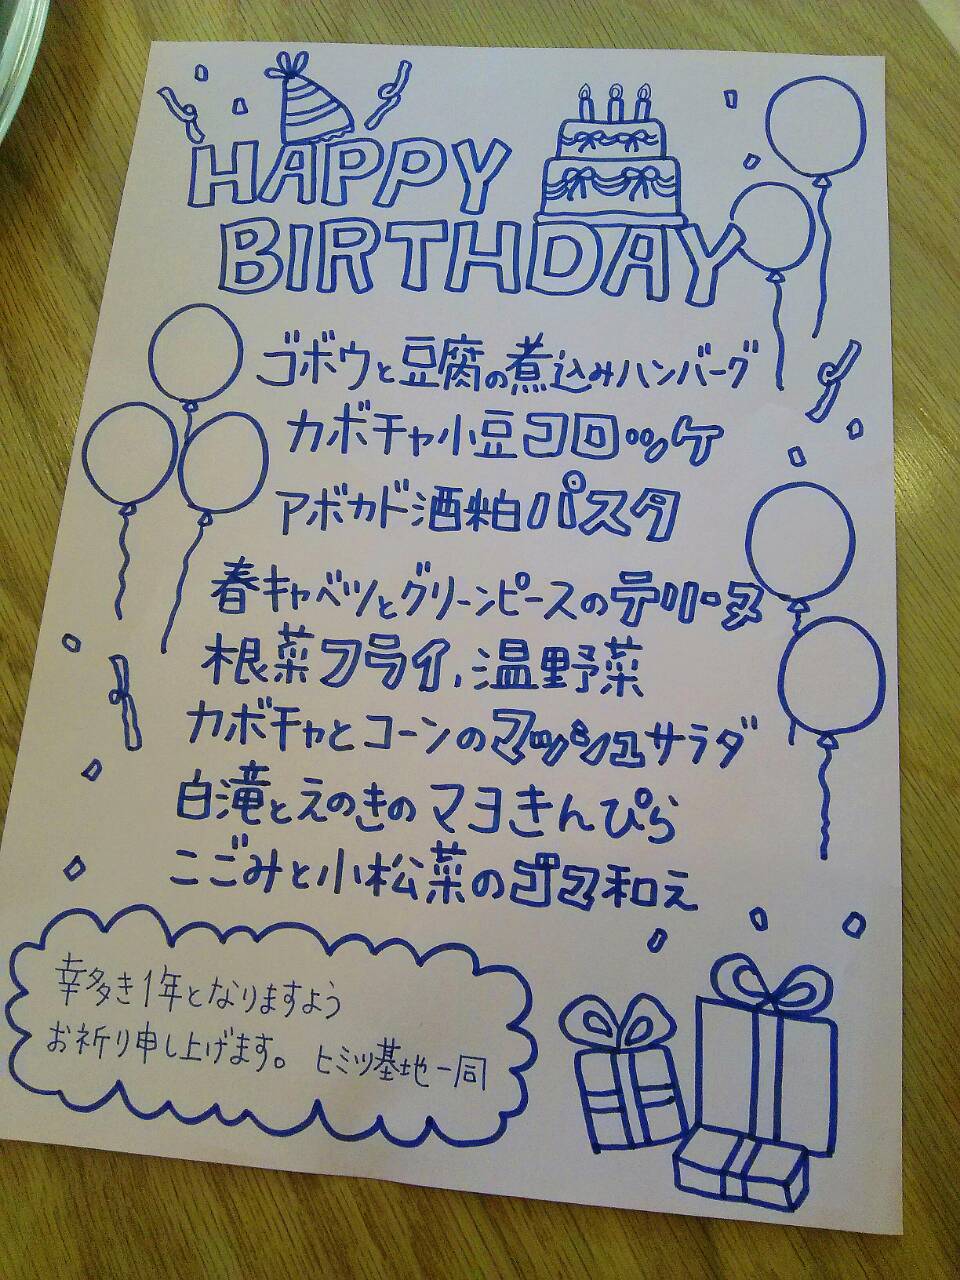 HAPPY
BIRTHDAY
ゴボウと豆腐の煮込みハンバーグ
カボチャ小豆コロッケ
アボカド酒粕パスタ
春キャベツとグリーンピースのテリーヌ
根菜フライ,温野菜
カボチャとコーンのマッシュサラダ
白滝とえのきのマヨきんぴら
こごみと小松菜のゴマ和え
幸多き1年となりますよう
お祈り申し上げます。 ヒミツ基地一同